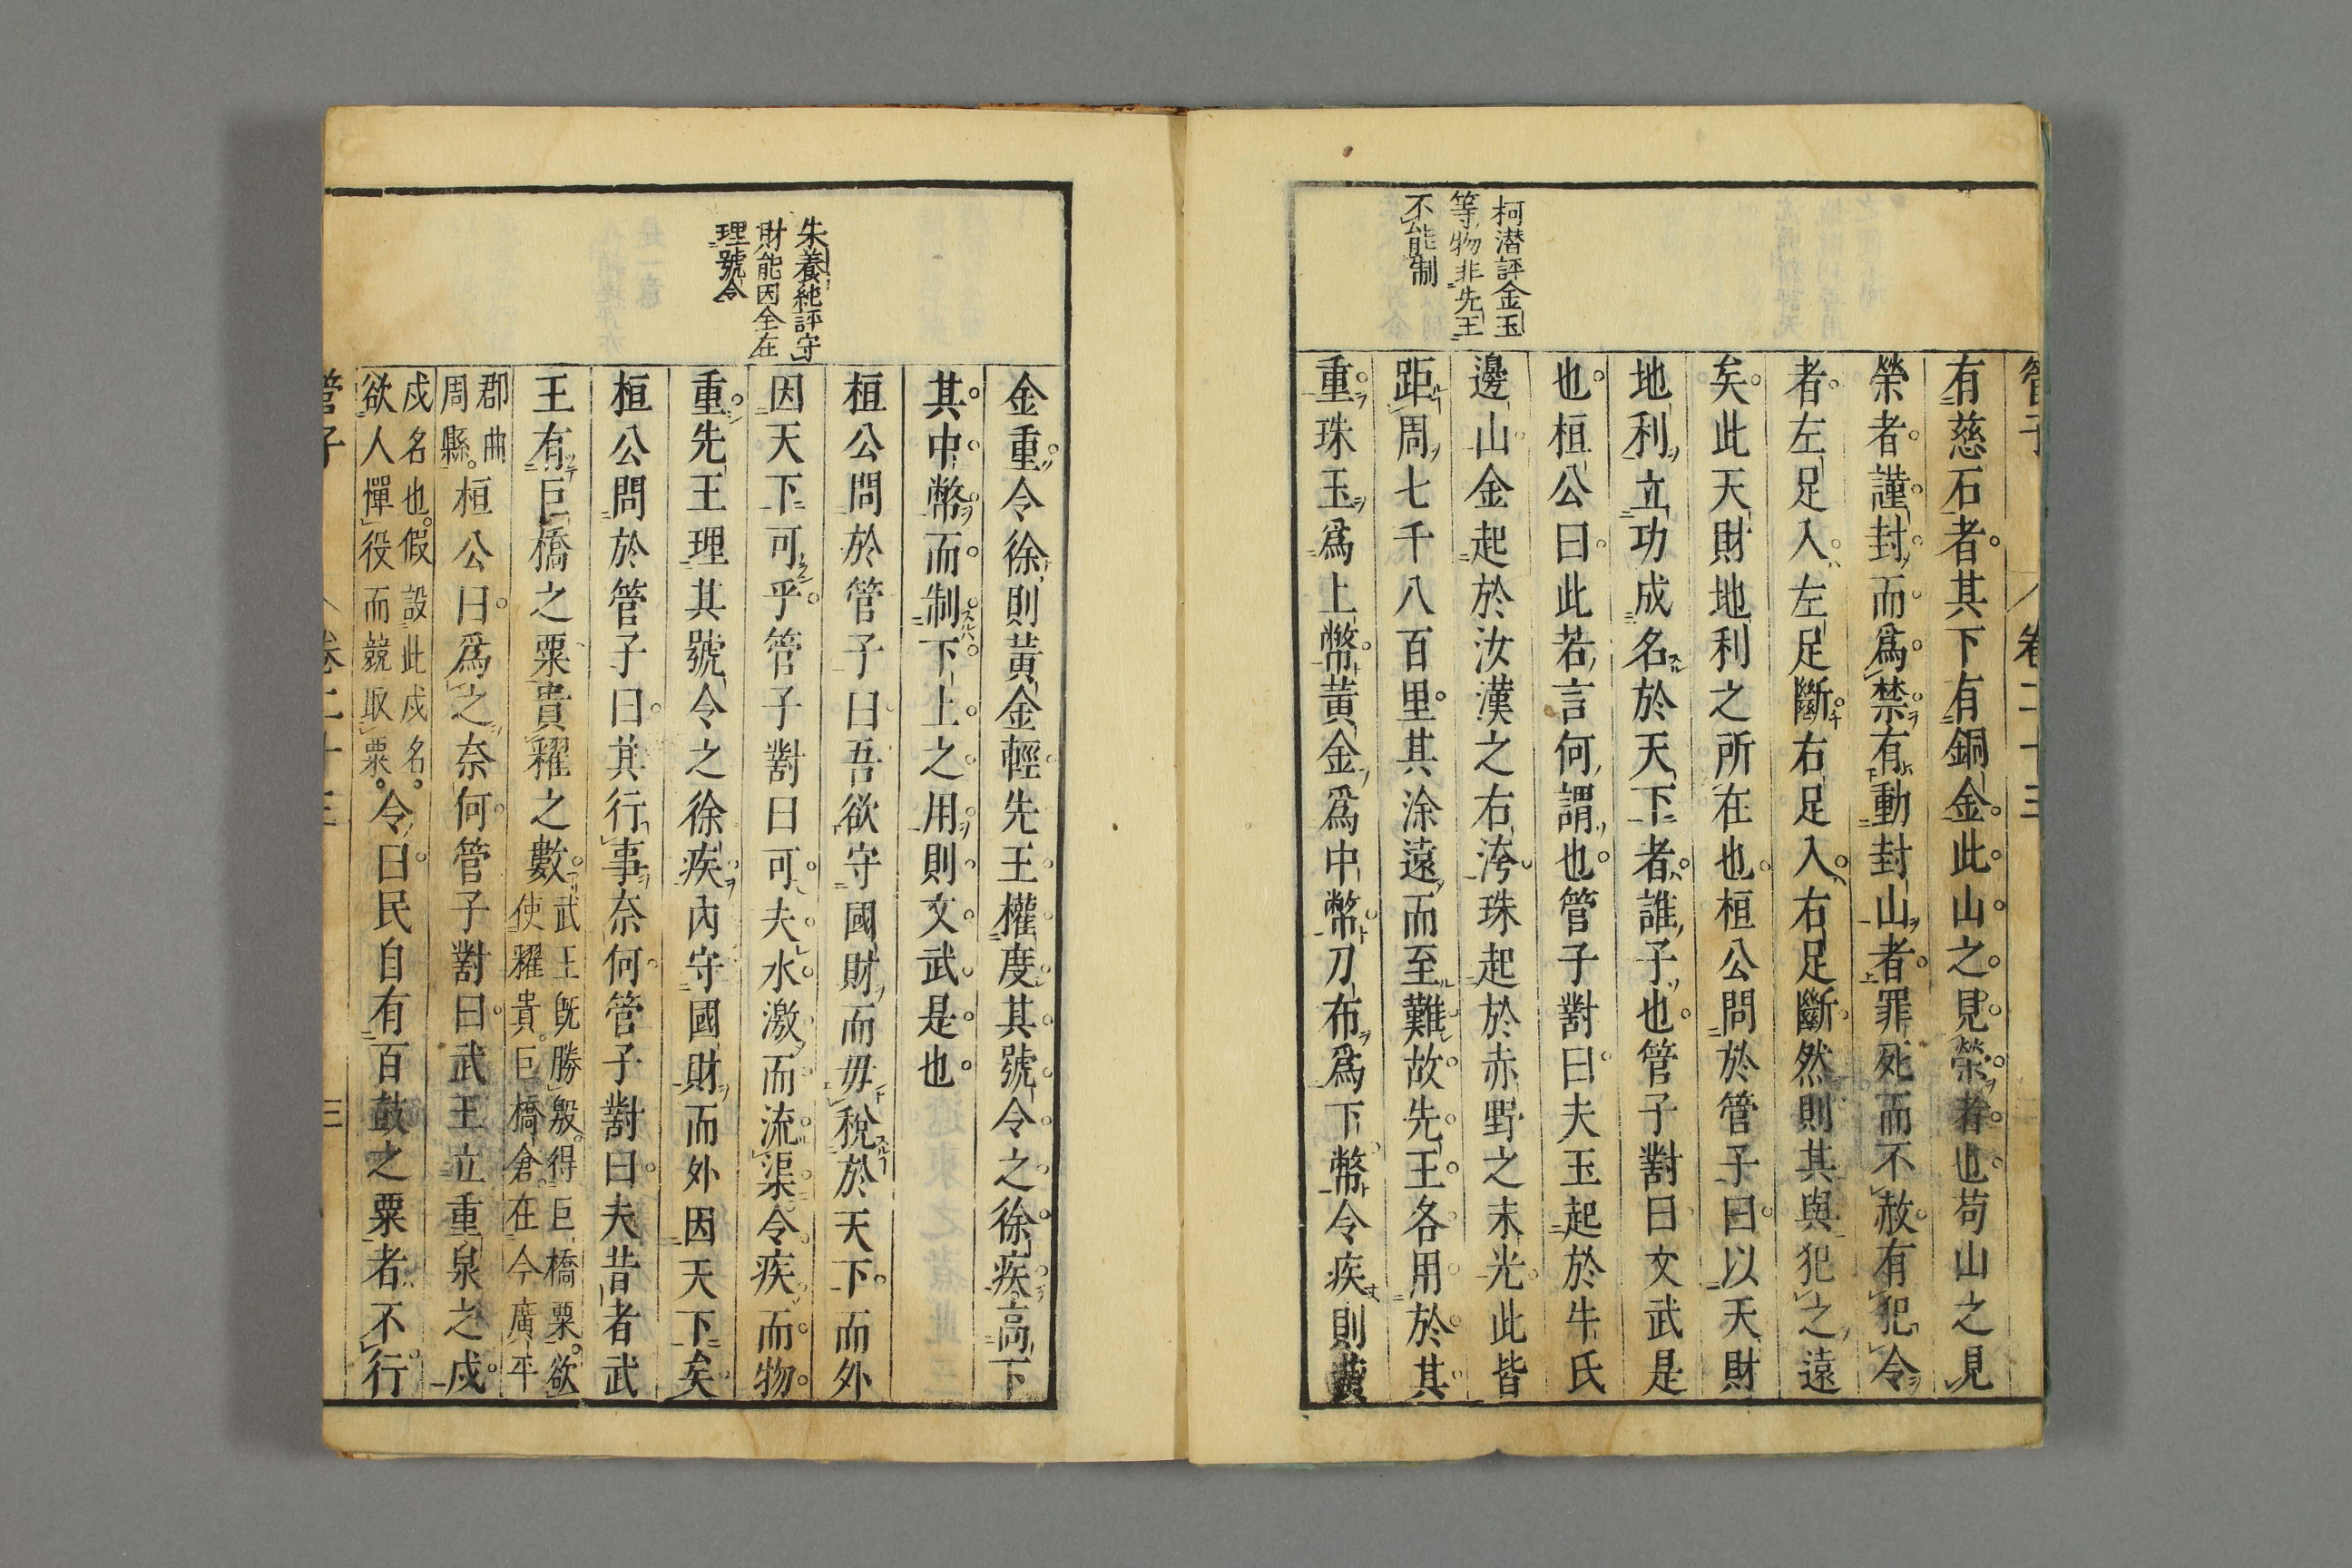 管子
卷二十三
柯潜評金玉
等物非先王
不能制
有慈石者其下有銅金此山之見榮者也苟山之見
榮者謹封而爲禁有動封山者罪死而不赦有犯令
者左足入左足斷右足入右足斷然則其與犯之遠
矣此天財地利之所在也桓公問於管子曰以天財
地利立功成名於天下者誰子也管子對曰文武是
也桓公曰此若言何謂也管子對曰夫玉起於牛氏
邊山金起於汝漢之右洿珠起於赤野之末光此皆
距周七千八百里其涂遠而至難故先王各用於其
重珠玉爲上幣黃金爲中幣刀布爲下幣令疾則黃
朱養純評守
財能因全在
理號令
金重令徐則黃金輕先王權度其號令之徐疾高下
其中幣而制下上之用則文武是也
桓公問於管子曰吾欲守國財而毋稅於天下而外
因天下可乎管子對曰可夫水激而流渠令疾而物
重先王理其號令之徐疾內守國財而外因天下矣
桓公問於管子曰其行事奈何管子對曰夫昔者武
王有巨橋之粟貴糴之數武王既勝殷得巨橋粟欲
使糴貴巨橋倉在今廣平
郡曲
周縣桓公曰爲之奈何管子對曰武王立重泉之戍
戍名也假設此戍名
欲人憚役而競取粟令曰民自有百鼓之粟者不行
管子
卷二十三
三